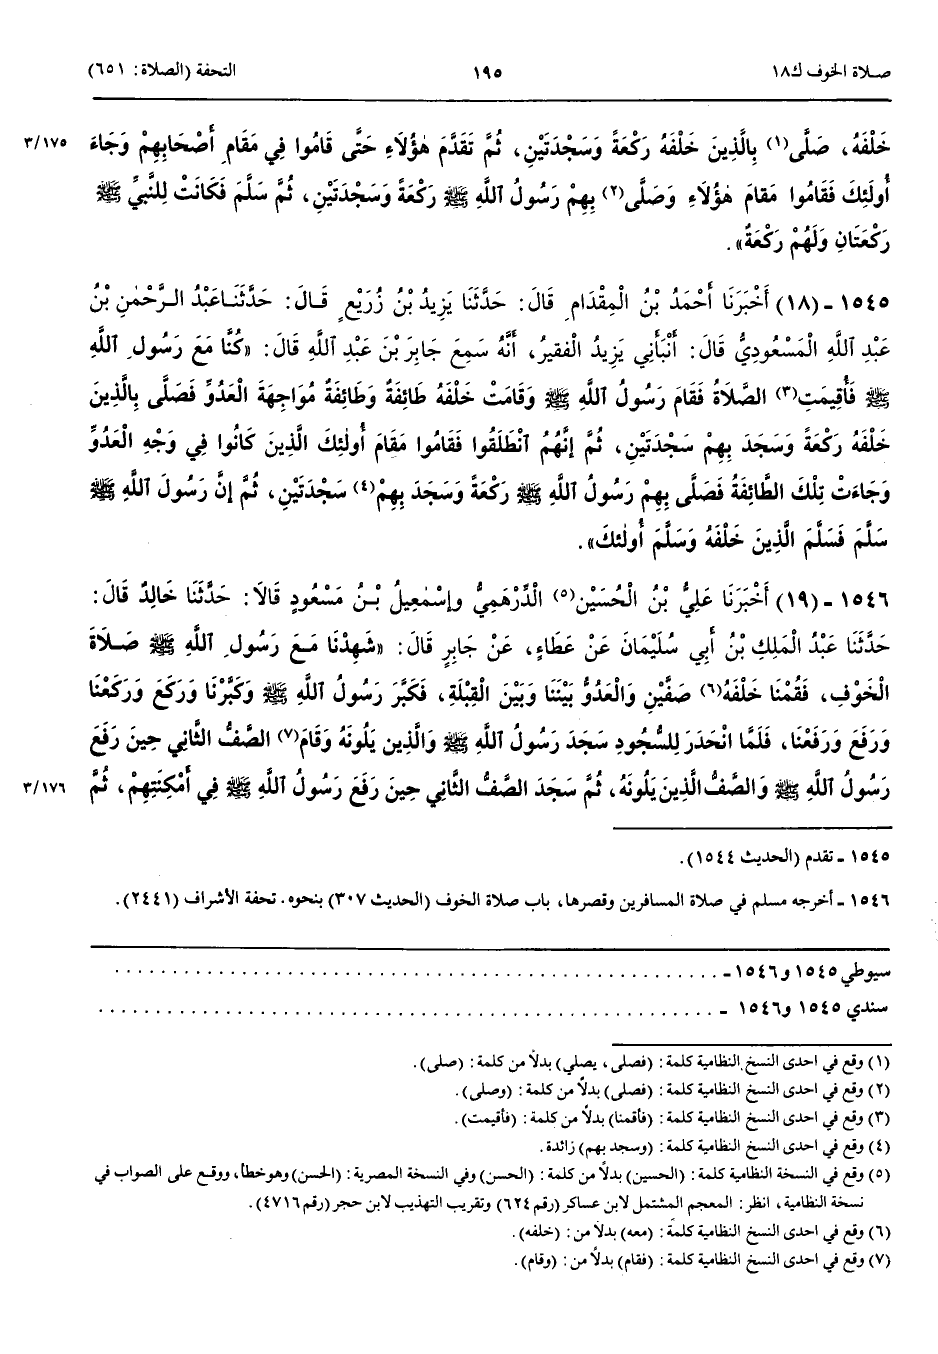 صلاة الخوف ك١٨ ١٩٥ التحفة (الصلاة: ٦٥١)
خَلْفَهُ، صَلَّى(١) بِالَّذِينَ خَلْفَهُ رَكْعَةً وَسَجْدَتَيْنِ، ثُمَّ تَقَدَّمَ هٰؤُلَاءِ حَتَّى قَامُوا فِي مَقَامِ أَصْحَابِهِمْ وَجَاءَ ٣/١٧٥
أُولَئِكَ فَقَامُوا مَقَامَ هٰؤُلَاءِ وَصَلَّى(٢) بِهِمْ رَسُولُ اللَّهِ ﷺ رَكْعَةً وَسَجْدَتَيْنِ، ثُمَّ سَلَّمَ فَكَانَتْ لِلنَّبِيِّ ﷺ
رَكْعَتَانِ وَلَهُمْ رَكْعَةٌ».
١٥٤٥ - (١٨) أَخْبَرَنَا أَحْمَدُ بْنُ الْمِقْدَامِ قَالَ: حَدَّثَنَا يَزِيدُ بْنُ زُرَيْعٍ قَالَ: حَدَّثَنَا عَبْدُ الرَّحْمٰنِ بْنُ
عَبْدِ اللَّهِ الْمَسْعُودِيُّ قَالَ: أَنْبَأَنِي يَزِيدُ الْفَقِيرُ، أَنَّهُ سَمِعَ جَابِرَ بْنَ عَبْدِ اللَّهِ قَالَ: «كُنَّا مَعَ رَسُولِ اللَّهِ
ﷺ فَأُقِيمَتِ(٣) الصَّلَاةُ فَقَامَ رَسُولُ اللَّهِ ﷺ وَقَامَتْ خَلْفَهُ طَائِفَةٌ وَطَائِفَةٌ مُوَاجِهَةَ الْعَدُوِّ فَصَلَّى بِالَّذِينَ
خَلْفَهُ رَكْعَةً وَسَجَدَ بِهِمْ سَجْدَتَيْنِ، ثُمَّ إِنَّهُمُ انْطَلَقُوا فَقَامُوا مَقَامَ أُولٰئِكَ الَّذِينَ كَانُوا فِي وَجْهِ الْعَدُوِّ
وَجَاءَتْ تِلْكَ الطَّائِفَةُ فَصَلَّى بِهِمْ رَسُولُ اللَّهِ ﷺ رَكْعَةً وَسَجَدَ بِهِمْ(٤) سَجْدَتَيْنِ، ثُمَّ إِنَّ رَسُولَ اللَّهِ ﷺ
سَلَّمَ فَسَلَّمَ الَّذِينَ خَلْفَهُ وَسَلَّمَ أُولٰئِكَ».
١٥٤٦ - (١٩) أَخْبَرَنَا عَلِيُّ بْنُ الْحُسَيْنِ(٥) الدِّرْهَمِيُّ وإِسْمٰعِيلُ بْنُ مَسْعُودٍ قَالَا: حَدَّثَنَا خَالِدٌ قَالَ:
حَدَّثَنَا عَبْدُ الْمَلِكِ بْنُ أَبِي سُلَيْمَانَ عَنْ عَطَاءٍ، عَنْ جَابِرٍ قَالَ: «شَهِدْنَا مَعَ رَسُولِ اللَّهِ ﷺ صَلَاةَ
الْخَوْفِ، فَقُمْنَا خَلْفَهُ(٦) صَفَّيْنِ وَالْعَدُوُّ بَيْنَنَا وَبَيْنَ الْقِبْلَةِ، فَكَبَّرَ رَسُولُ اللَّهِ ﷺ وَكَبَّرْنَا وَرَكَعَ وَرَكَعْنَا
وَرَفَعَ وَرَفَعْنَا، فَلَمَّا انْحَدَرَ لِلسُّجُودِ سَجَدَ رَسُولُ اللَّهِ ﷺ وَالَّذِينَ يَلُونَهُ وَقَامَ(٧) الصَّفُّ الثَّانِي حِينَ رَفَعَ
رَسُولُ اللَّهِ ﷺ وَالصَّفُّ الَّذِينَ يَلُونَهُ، ثُمَّ سَجَدَ الصَّفُّ الثَّانِي حِينَ رَفَعَ رَسُولُ اللَّهِ ﷺ فِي أَمْكِنَتِهِمْ، ثُمَّ ٣/١٧٦
١٥٤٥ - تقدم (الحديث ١٥٤٤).
١٥٤٦ - أخرجه مسلم في صلاة المسافرين وقصرها، باب صلاة الخوف (الحديث ٣٠٧) بنحوه. تحفة الأشراف (٢٤٤١).
سيوطي ١٥٤٥ و١٥٤٦ - . . . . . . . . . . . . . . . . . . . .
سندي ١٥٤٥ و١٥٤٦ - . . . . . . . . . . . . . . . . . . . .
(١) وقع في احدى النسخ النظامية كلمة: (فصلى، يصلي) بدلاً من كلمة: (صلى).
(٢) وقع في احدى النسخ النظامية كلمة: (فصلى) بدلاً من كلمة: (وصلى).
(٣) وقع في احدى النسخ النظامية كلمة: (فأقمنا) بدلاً من كلمة: (فأقيمت).
(٤) وقع في احدى النسخ النظامية كلمة: (وسجد بهم) زائدة.
(٥) وقع في النسخة النظامية كلمة: (الحسين) بدلاً من كلمة: (الحسن) وفي النسخة المصرية: (الحسن) وهو خطأ، ووقع على الصواب في
نسخة النظامية، انظر: المعجم المشتمل لابن عساكر (رقم ٦٢٤) وتقريب التهذيب لابن حجر (رقم ٤٧١٦).
(٦) وقع في احدى النسخ النظامية كلمة: (معه) بدلاً من: (خلفه).
(٧) وقع في احدى النسخ النظامية كلمة: (فقام) بدلاً من: (وقام).